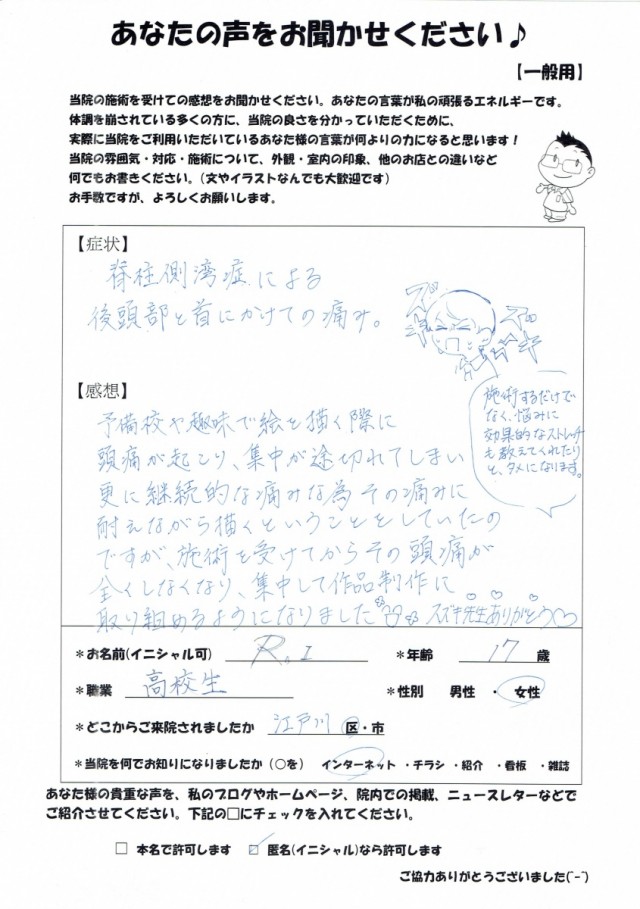 あなたの声をお聞かせください♪
【一般用】
当院の施術を受けての感想をお聞かせください。あなたの言葉が私の頑張るエネルギーです。
体調を崩されている多くの方に、当院の良さを分かっていただくために、
実際に当院をご利用いただいているあなた様の言葉が何よりの力になると思います！
当院の雰囲気・対応・施術について、外観・室内の印象、他のお店との違いなど
何でもお書きください。（文やイラストなんでも大歓迎です）
お手数ですが、よろしくお願いします。
【症状】
脊柱側湾症による
後頭部と首にかけての痛み。
ズキ
ズキ
【感想】
予備校や趣味で絵を描く際に
頭痛が起こり、集中が途切れてしまい
更に継続的な痛みな為その痛みに
耐えながら描くということをしていたの
ですが、施術を受けてからその頭痛が
全くしなくなり、集中して作品制作に
取り組めるようになりました
スズキ先生ありがとう♡
施術するだけで
なく、悩みに
効果的なストレッチ
も教えてくれたり
と、タメになります。
＊お名前（イニシャル可） R.I ＊年齢 17 歳
＊職業 高校生 ＊性別 男性 ・ 女性
＊どこからご来院されましたか 江戸川 区・市
＊当院を何でお知りになりましたか（○を） インターネット ・チラシ ・紹介 ・看板 ・雑誌
あなた様の貴重な声を、私のブログやホームページ、院内での掲載、ニュースレターなどで
ご紹介させてください。下記の□にチェックを入れてください。
□ 本名で許可します ☑ 匿名（イニシャル）なら許可します
ご協力ありがとうございました(^-^)